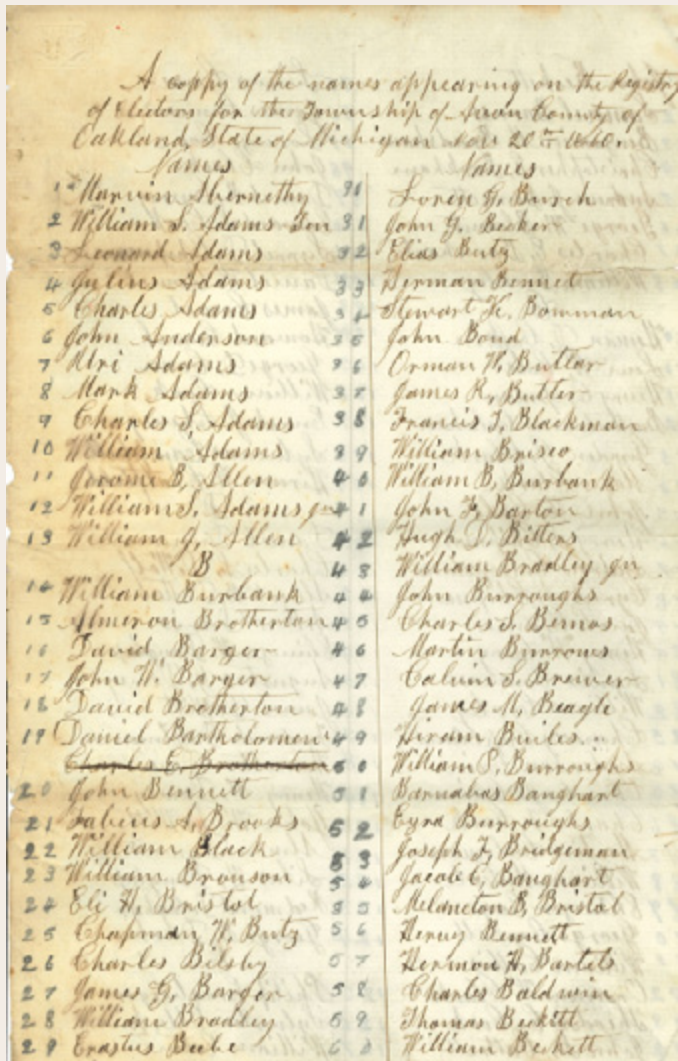 A coppy of the names appearing on the Registry
of Electors for the Township of Avon County of
Oakland, State of Michigan Nov 20th 1860.
Names
1 Marvin Abernethy
2 William S. Adams Sen
3 Leonard Adams
4 Julius Adams
5 Charles Adams
6 John Anderson
7 Uri Adams
8 Mark Adams
9 Charles S. Adams
10 William Adams
11 Jerome B, Allen
12 William S. Adams jr
13 William J, Allen
B
14 William Burbank
15 Almeron Brotherton
16 David Barger
17 John W. Barger
18 David Brotherton
19 Daniel Bartholomew
Charles C, Brotherton
20 John Bennett
21 Fabius A, Brooks
22 William Black
23 William Bronson
24 Eli H, Bristol
25 Chapman W, Butz
26 Charles Bilsby
27 James G, Barger
28 William Bradley
29 Erastus Beebe
Names
30 Loren G, Burch
31 John G, Becker
32 Elias Butz
33 Herman Bennet
34 Stewart K. Bowman
35 John Bond
36 Orman H, Butlar
37 James R, Butler
38 Francis T, Blackman
39 William Brisco
40 William B, Burbank
41 John F, Barton
42 Hugh Bitters
43 William Bradley jn
44 John Burroughs
45 Charles S. Bemos
46 Martin Burrows
47 Calvin S, Brewer
48 James M, Beagle
49 Hiram
50 William S, Burroughs
51 Barnabas Banghart
52 Ezra Burroughs
53 Joseph F, Bridgeman
54 Jacob C, Banghart
55 Melancton B, Bristol
56 Henry Bennett
57 Hermon H, Bartels
58 Charles Baldwin
59 Thomas Beckett
60 William Beckett